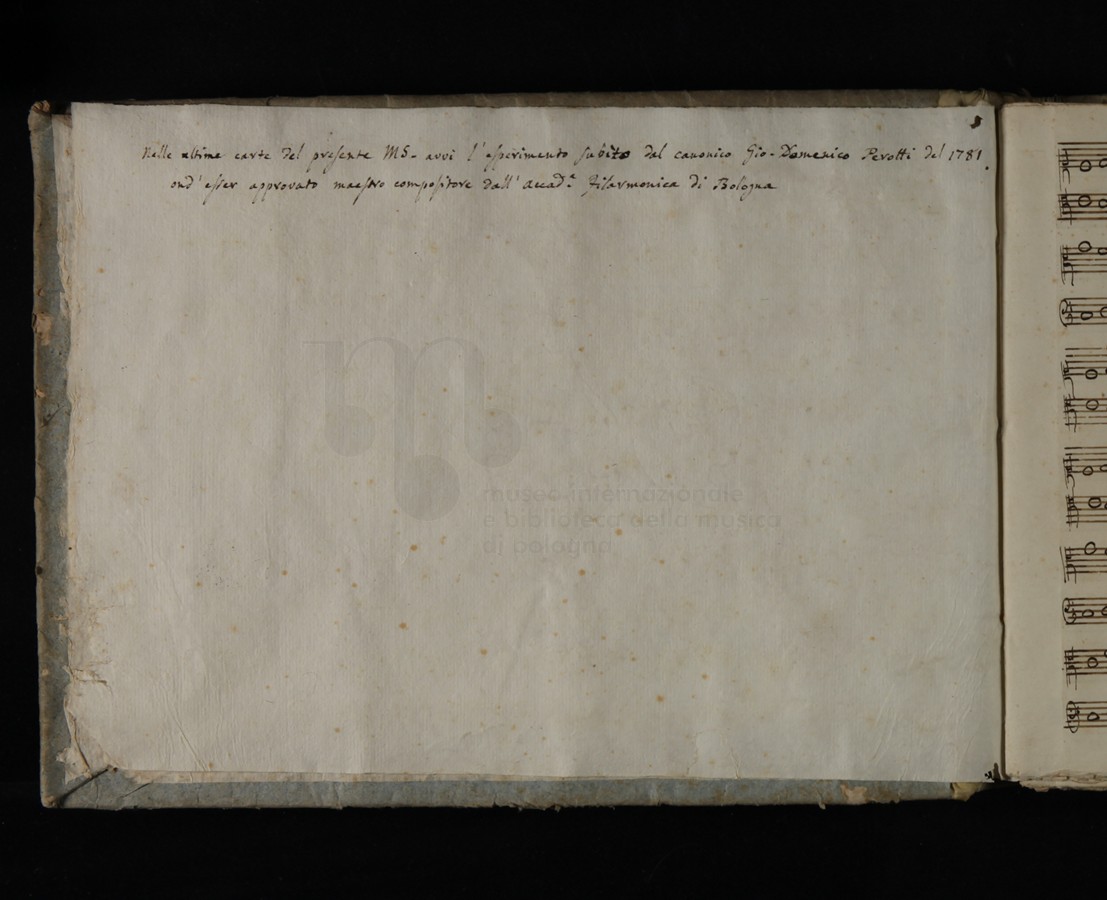 Nelle ultime carte del presente MS. avvi l'esperimento subìto dal canonico Gio. Domenico Perotti del 1781.
ond'esser approvato maestro compositore dall'Accad.ᵃ Filarmonica di Bologna
museo internazionale
e biblioteca della musica
di bologna